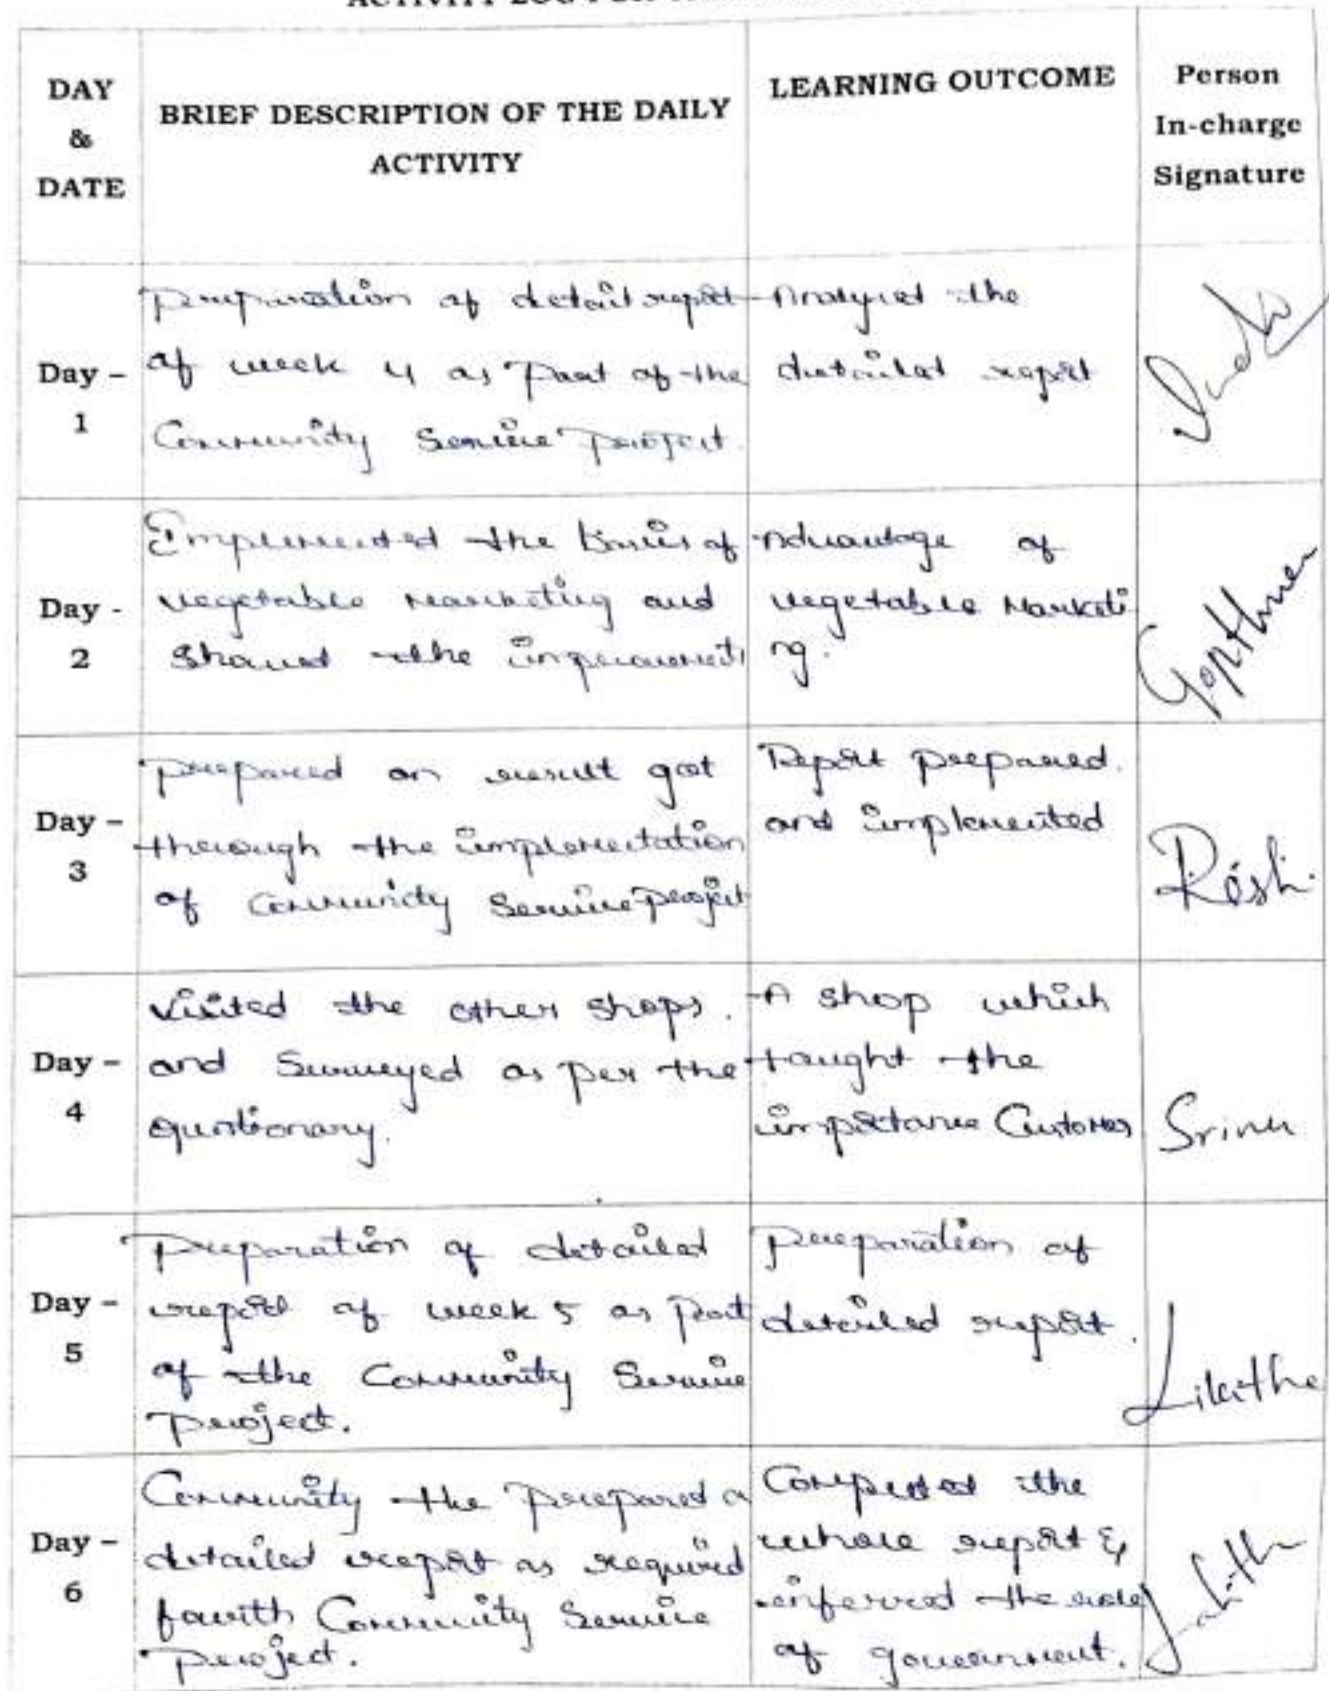 DAY
&
DATE
BRIEF DESCRIPTION OF THE DAILY
ACTIVITY
LEARNING OUTCOME
Person
In-charge
Signature
Day -
1
Preparation of detail report
of week 4 as Part of the
Community Service Project.
Analysed the
detailed report
Day -
2
Implemented the basics of
vegetable marketing and
Shared the
Advantage of
vegetable Marketi
ng.
Day -
3
prepared on result got
through the implementation
of Community Service project
Report prepared.
and implemented
Resh.
Day -
4
visited the other shops.
and Surveyed as per the
quntionary.
A shop which
taught the
importance Customer
Srinu
Day -
5
Preparation of detailed
report of week 5 as part
of the Community Service
Project.
Preparation of
detailed report.
Likithe
Day -
6
Community the Prepared a
detailed report as required
fourth Community Service
Project.
Completed the
whole report &
inferred the role
of government.